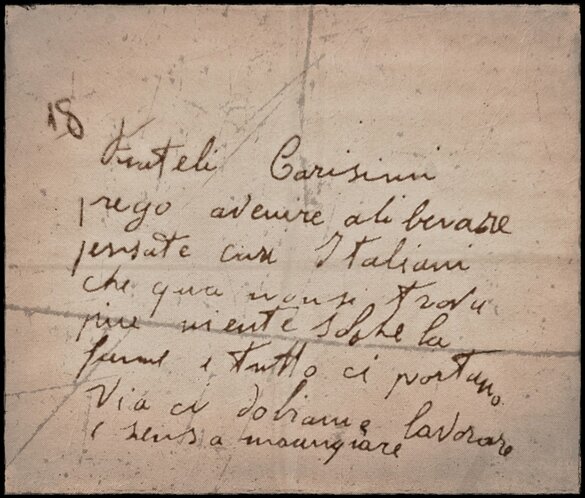 18
Frateli Carisimi
prego avenire aliberare
pensate cari Italiani
che qua non si trova
piu niente solo che la
fame e tutto ci portano
Via ci dobiamo lavorare
e sensa maungiare